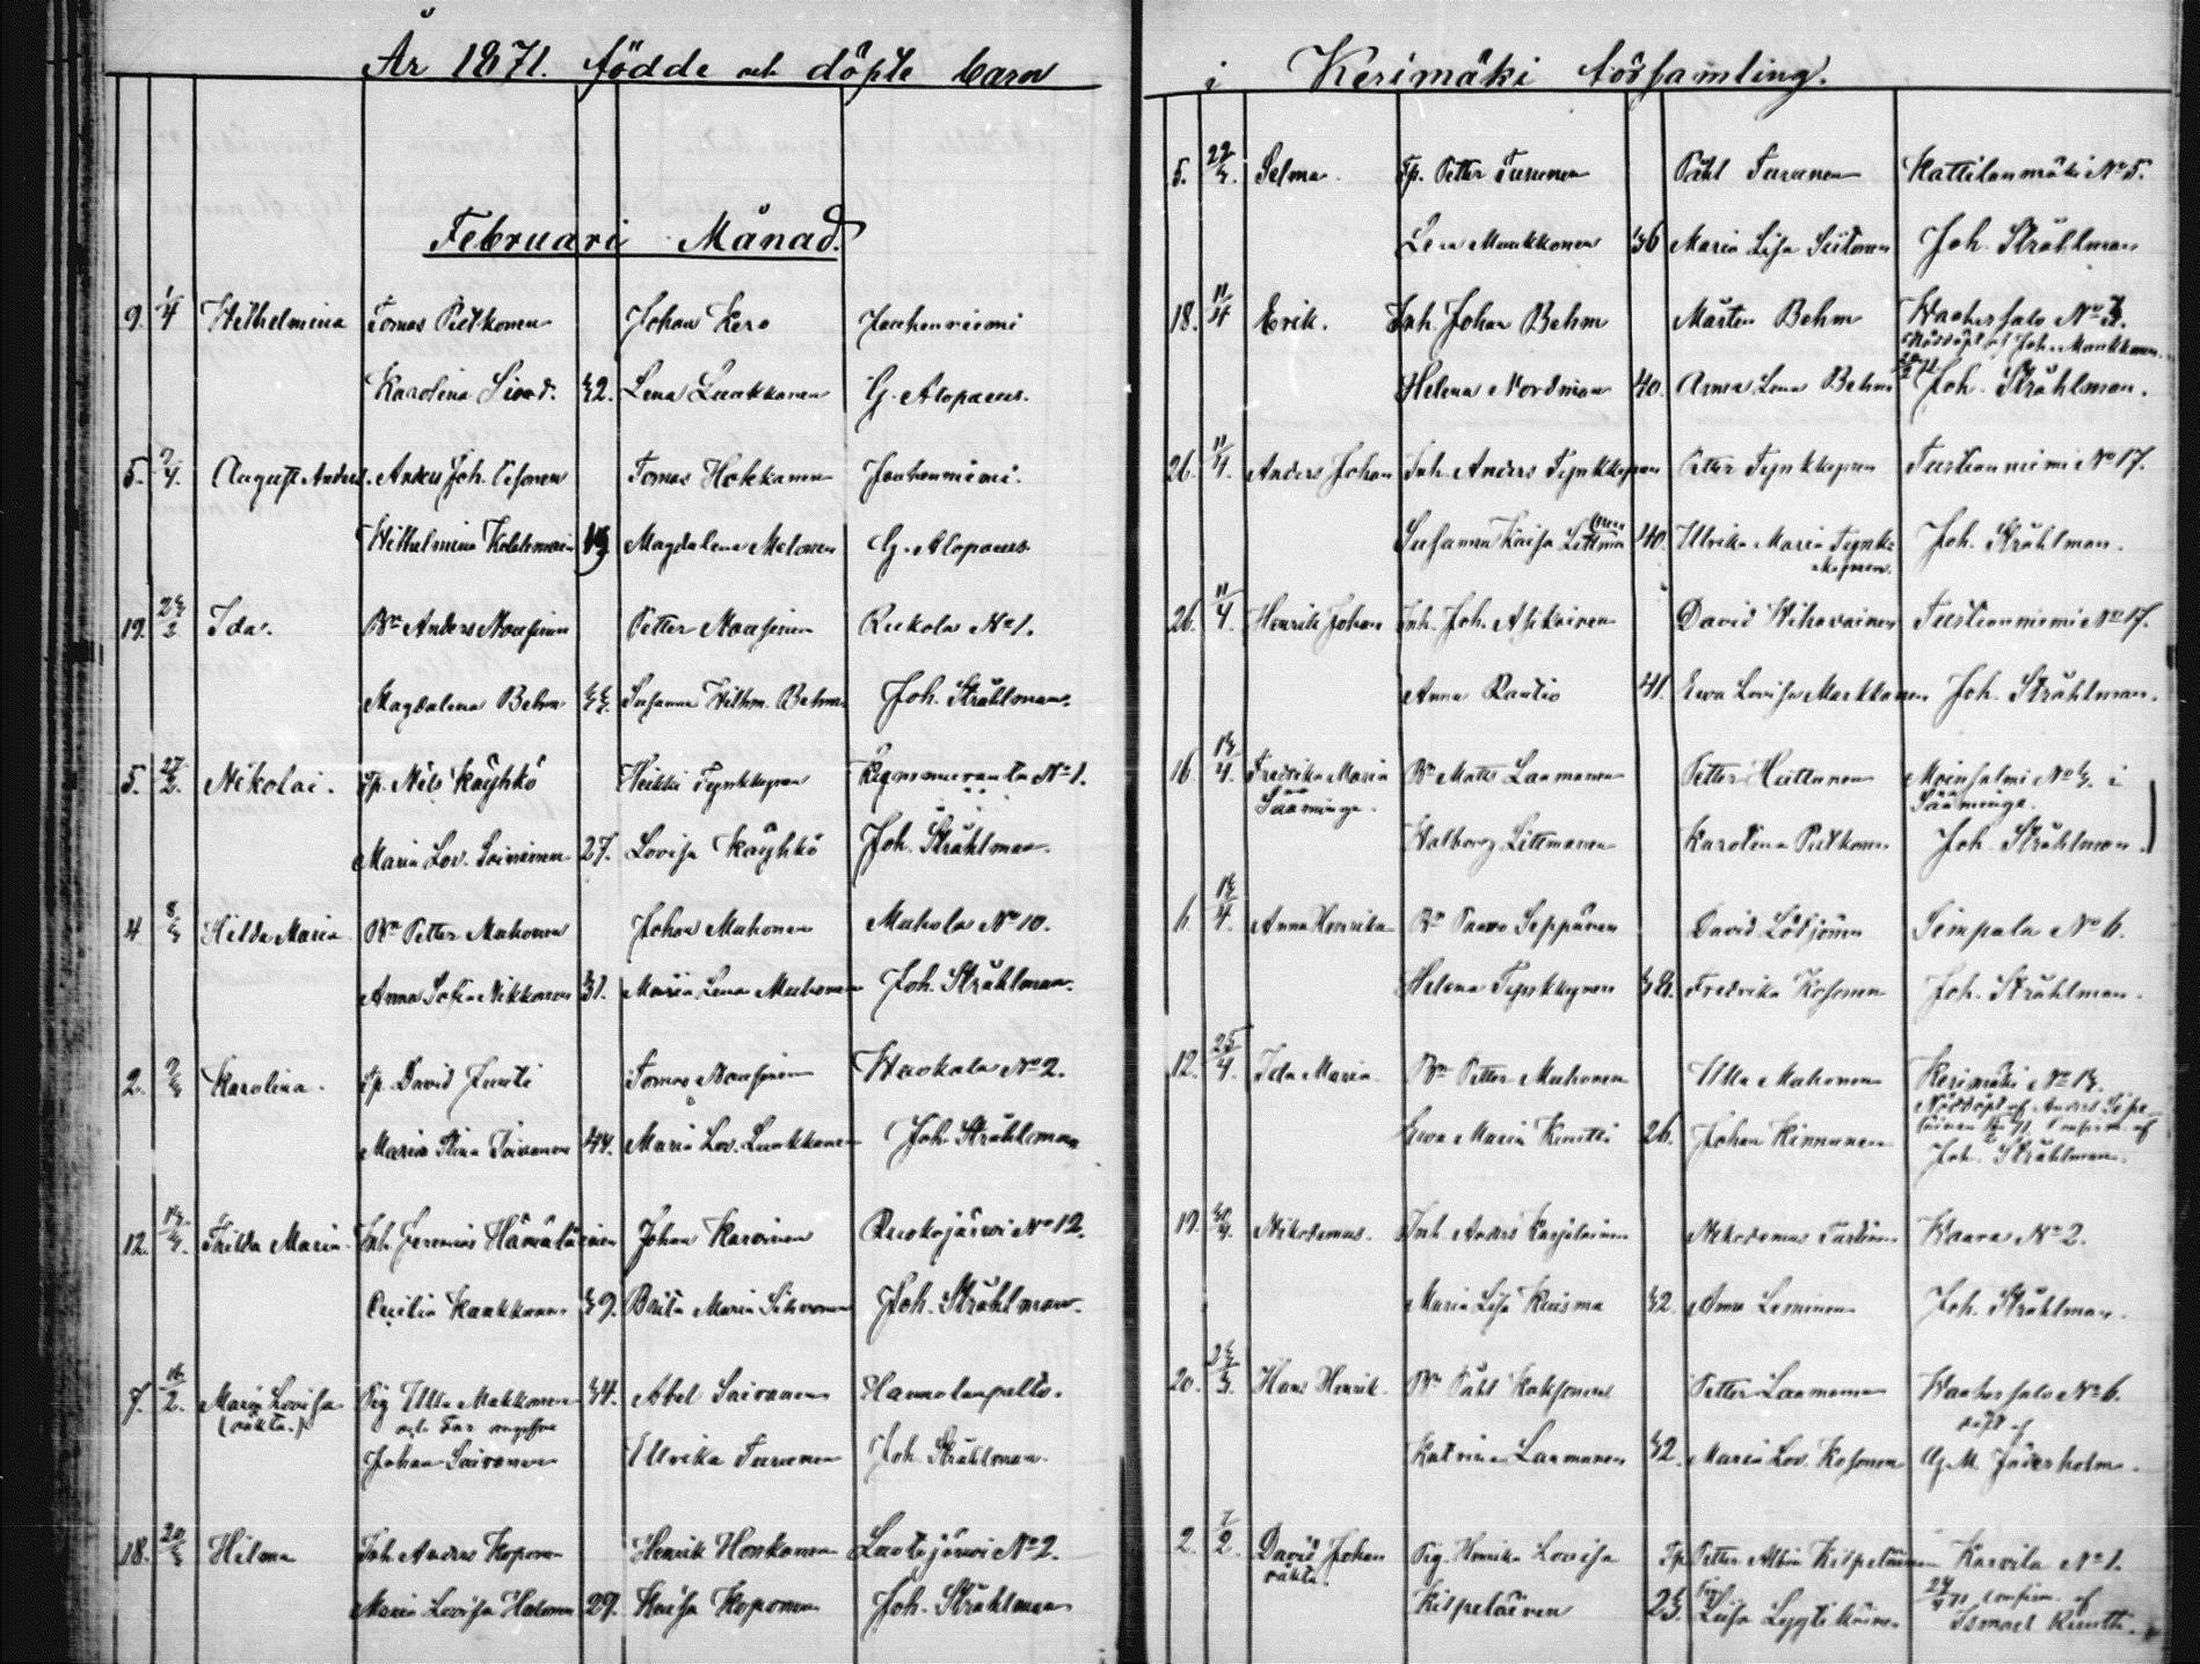 År 1871. födde och döpte barn
Februari Månad.
9. 1/4 Wilhelmina Tomas Pulkonen Johan Kero Jouhenniemi
Karolina Sivod. 32. Lena Luukkonen G. Alopaeus.
5. 7/4. August Anders. Anders Joh. Tomas Hokkanen Jouhenniemi.
Wilhelmina Magdalena Malonen G. Alopaeus
19. Ida. Bn Anders Nousiainen Petter Nousiainen Ruokola No 1.
Magdalena Behm 33. Susanna Wilhm. Behm Joh. Stråhlman.
5. 27/2. Nikolai. Tp. Nils Käyhkö Heikki Tynkkynen No 1.
Maria Lov. Soininen 27. Lovisa Käyhkö Joh. Stråhlman.
4 8/3 Hilda Maria Bn Petter Muhonen Johan Muhonen Makola No 10.
Anna Sofia Nikkonen 31. Maria Lena Muhonen Joh. Stråhlman.
2. 9/3 Karolina. Tp. David Juuti Tomas Nousiainen Waokala No 2.
Maria Stina Toivonen 44. Maria Lov. Luukkonen Joh. Stråhlman
12. 14/3. Hilda Maria Inh. Jeremias Hämäläinen Johan Karvinen Ruokojärvi No 12.
Cecilia Kaukkonen 39. Brita Maria Sihvonen Joh. Stråhlman.
7. 16/2. Maria Lovisa Pig Ulla Makkonen 34. Abel Saivanen Hannolanpelto.
(oäkta.) och Far
Johan Saivanen Ulrika Turunen Joh. Stråhlman.
18. 20/3 Hilma Inh. Anders Koponen Henrik Honkanen Luotojärvi No 2.
Maria Lovisa Halonen 29. Kaisa Koponen Joh. Stråhlman
i Kerimäki församling.
5. 22/3. Selma. Tp. Petter Turunen Påhl Turunen Kattilanmäki No 5.
Lena Muukkonen 36 Maria Lisa Siitonen Joh. Stråhlman
18. 11/4 Erik. Inh. Johan Behm Mårten Behm Waahersalo No
Nöddöpt af Joh. Muukkonen.
Helena Nordman 40. Anna Lena Behm Joh. Stråhlman.
26. 11/4. Anders Johan Inh. Anders Tynkkynen Petter Tynkkynen Tuutionniemi No 17.
Susanna Kaisa Littmanen 40. Ulrika Maria Tynkkynen. Joh. Stråhlman.
26. 11/4. Henrik Johan Inh. Joh. Asikainen David Wihavainen Tuutionniemi No 17.
Anna Rautio 41. Ewa Lovisa Markkanen Joh. Stråhlman.
16. 14/4. Fredrika Maria Bn Matts Laamanen Petter Huttunen Moinsalmi No 3. i
Sääminge. Sääminge.
Walborg Littmanen Karolina Pulkonen Joh. Stråhlman.
6. 14/4. Anna Henrika Bn Paavo Seppänen David Löljönen Simpala No 6.
Helena Tynkkynen 38. Fredrika Kosonen Joh. Stråhlman.
12. 25/4. Ida Maria Bn Petter Muhonen Ulla Muhonen Kerimäki No 13.
Nöddöpt af Anders
confirm. af
Ewa Maria Kuutti 26. Johan Kinnunen Joh. Stråhlman.
19. Nikodemus. Inh. Anders Karjalainen Nikodemus Turtinen Waara No 2.
Maria Lisa Kuisma 32. Anna Leminen Joh. Stråhlman.
20. Hans Henrik. Bn Påhl Kuksonen Petter Laamanen Waahersalo No 6.
döpt af
Katrina Laamanen 32. Maria Lov. Kosonen G. M. Jäderholm.
2. 7/2. David Johan Pig. Henrika Lovisa Tp. Petter Albin Kilpeläinen Karvila No 1.
oäkta. confirm. af
Kilpeläinen 25. Luisa Lyytikäinen Ismael Kuutti.